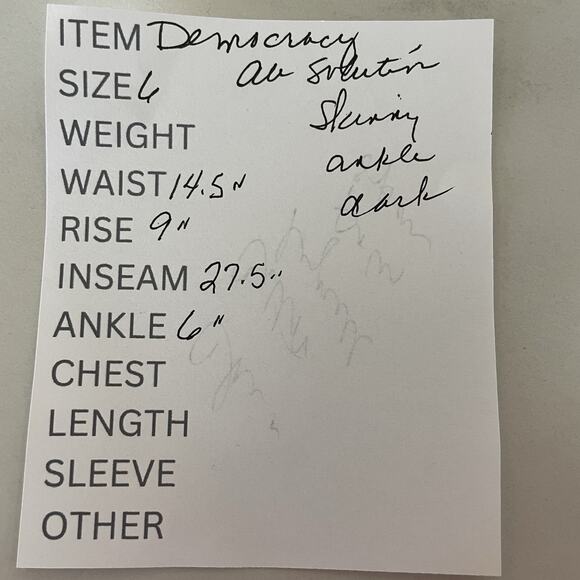 ITEM Democracy
SIZE 6 Ab Solution
WEIGHT Skinny
WAIST 14.5" ankle
RISE 9" dark
INSEAM 27.5"
ANKLE 6"
CHEST
LENGTH
SLEEVE
OTHER